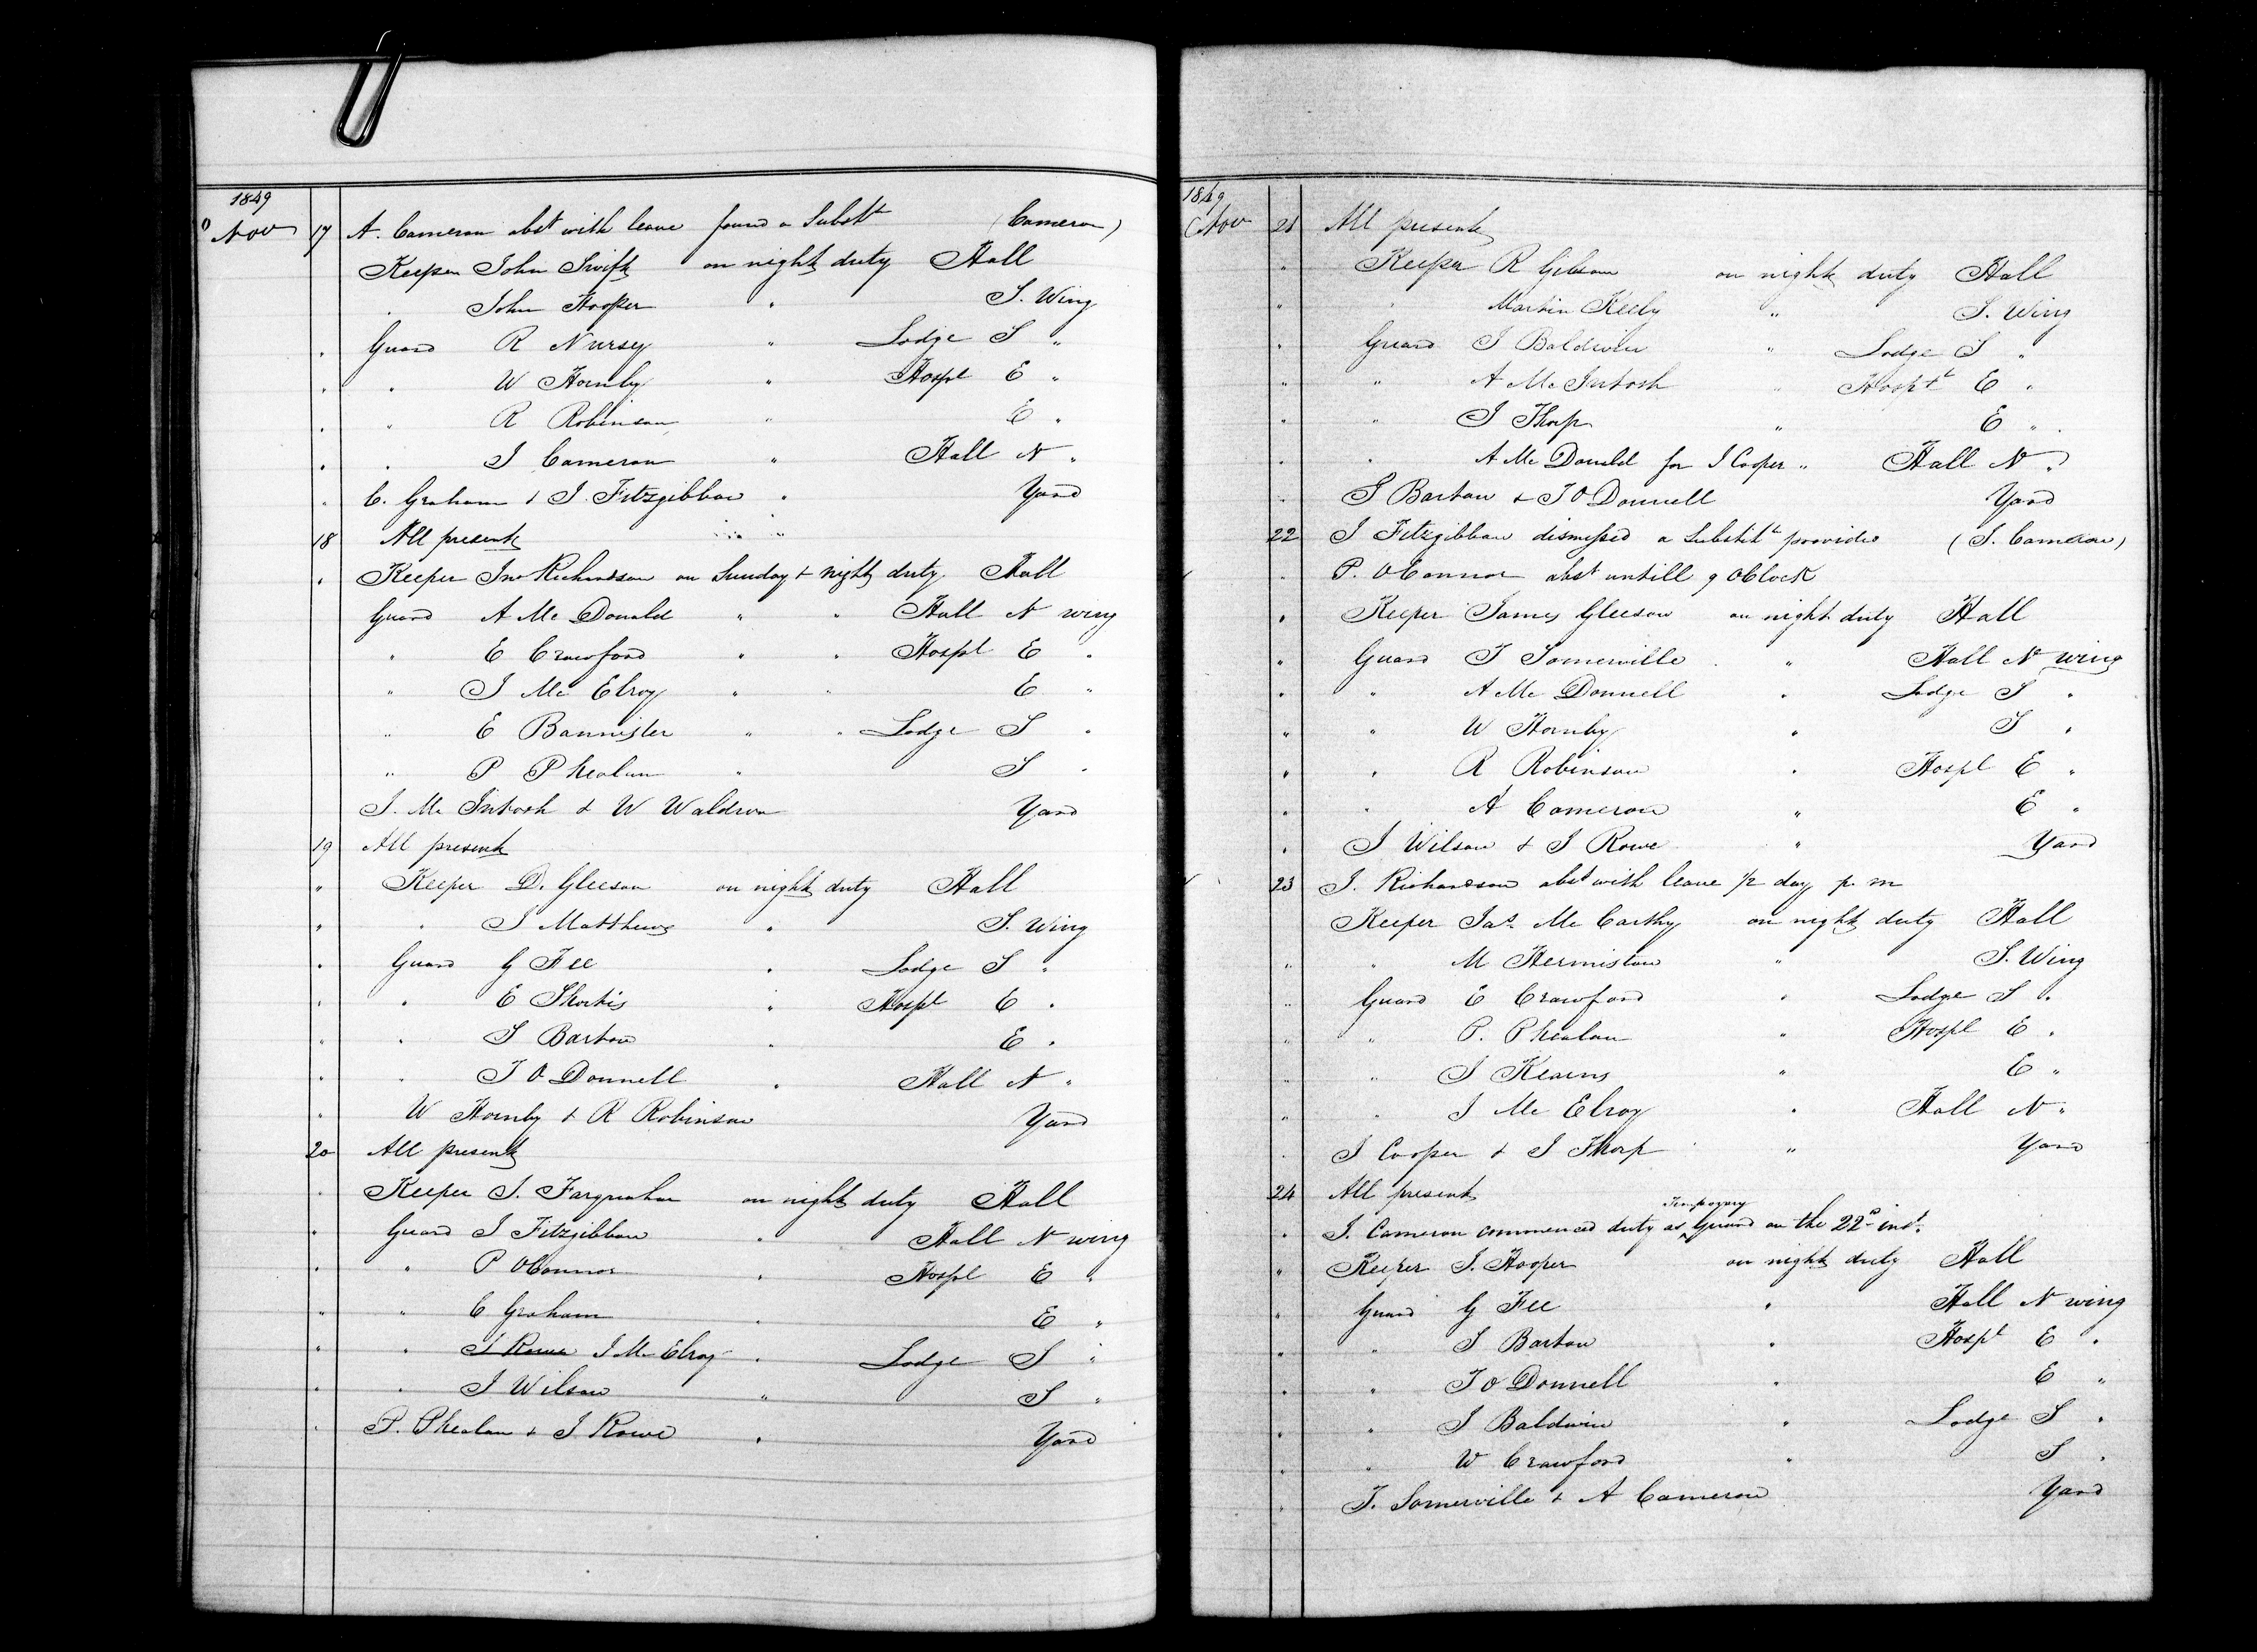 1849
Nov 17 A. Cameron abst with leave found a Substt (Cameron)
Keeper John Swift on night duty Hall
" John Hooper " S. Wing
" Guard R Nursey " Lodge S "
" " W Hornby " Hospl E "
" " R Robinson " E "
" " J Cameron " Hall N "
" C. Graham & J. Fitzgibbon " Yard
18 All present
" Keeper Jno Richardson on Sunday & night duty Hall
Guard A Mc Donald " " Hall N wing
" E Crawford " " Hospl E "
" J Mc Elroy " " E "
" E Bannister " " Lodge S "
" P Phealan " S "
J. Mc Intosh & W Waldron Yard
19 All present
" Keeper D. Gleeson on night duty Hall
" " J Matthews " S. Wing
" Guard G Fee " Lodge S "
" " E Shortis " Hospl E "
" " S Barton " E "
" " T O Donnell " Hall N "
" W Hornby & R Robinson Yard
20 All present
" Keeper J. Farquahar on night duty Hall
" Guard J Fitzgibbon " Hall N wing
" " P OConnor " Hospl E "
" " C Graham " E "
" " J Rowe J Mc Elroy " Lodge S "
" " J Wilson " S "
" P. Phealan & J Rowe " Yard
1849
Nov 21 All present
" Keeper R Gibson on night duty Hall
" " Martin Keely " S. Wing
" Guard J Baldwin " Lodge S "
" " A Mc Intosh " Hosptl E "
" " J Thorp " E "
" " A Mc Donald for J Cooper " Hall N "
" S Barton & T O Donnell Yard
22 J Fitzgibbon dismissed a Substitt provided (J. Cameron)
" P. OConnor abst untill 9 OClock
" Keeper James Gleeson on night duty Hall
" Guard T Somerville " Hall N wing
" " A Mc Donnell " Lodge S "
" " W Hornby " S "
" " R Robinson " Hospl E "
" " A Cameron " E "
" J Wilson & J Rowe " Yard
23 J. Richardson abst with leave 1/2 day p. m
Keeper Jas Mc Carthy on night duty Hall
" " M Hermiston " S. Wing
" Guard E Crawford " Lodge S "
" " P. Phealan " Hospl E "
" " J Kearns " E "
" " J Mc Elroy " Hall N "
" J Cooper & J Thorp " Yard
24 All present
" J. Cameron commenced duty as Temporary Guard on the 22d inst.
" Keeper J. Hooper on night duty Hall
" Guard G Fee " Hall N wing
" " S Barton " Hospl E "
" " T O Donnell " E "
" " J Baldwin " Lodge S "
" " W Crawford " S "
" T. Somerville & A Cameron Yard